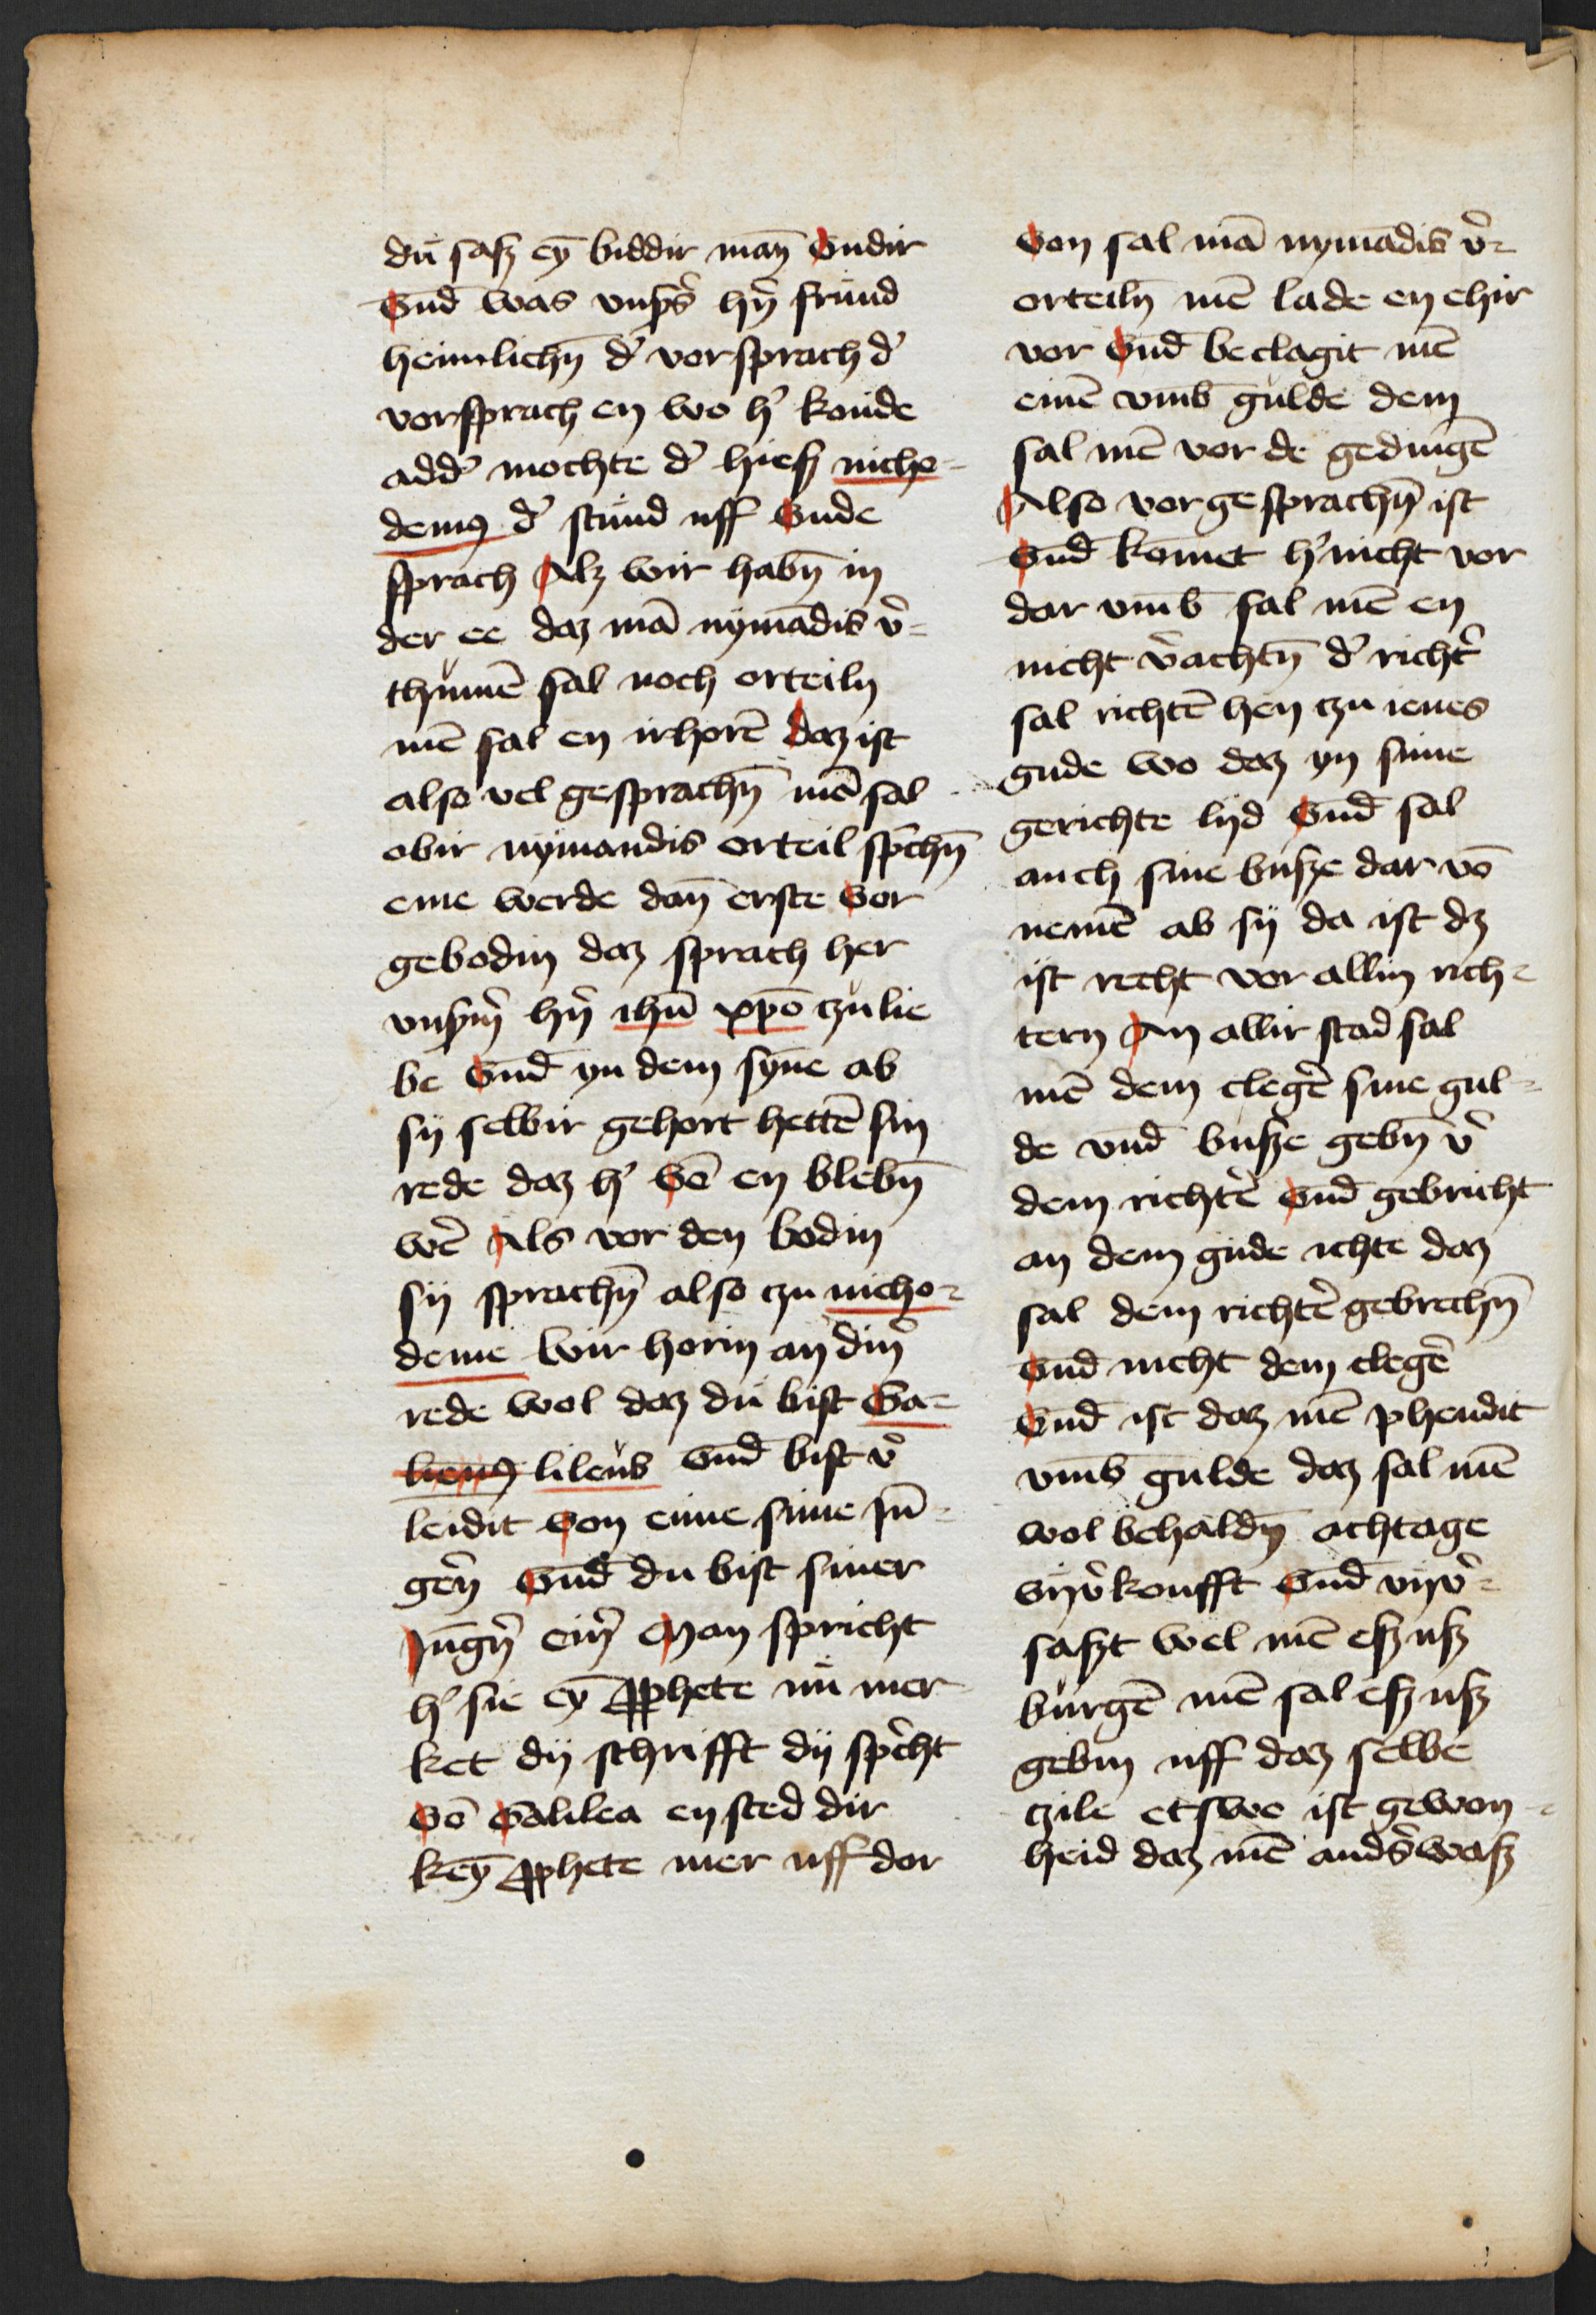 dů saſz ey̅ biddir man̅ vndir
vnd̅ was vnſs̾ hn̾ frůnd
heimlichn̅ d̾ vorſprach d̾
vorſprach en wo h̾ konde
add̾ mochte d̾ hieſz nicho-
demꝯ d̾ stůnd uff vnde
ſprach Alz wir habn̅ in
der ee daz ma̅ nyma̅dis v̾-
thůme̅ ſal noch orteiln
me̅ ſal en irhore̅ daz ist
also vel geſprachn̅ me̅ ſal
obir nymandis orteil ſp̾chn̅
eme werde dan̅ erste vor
gebodin daz ſprach her
vnſm̾ hn̾ ihu̅ xp̅o czů lie
be vnd̅ yn dem ſyne ab
ſy ſelbir gehort hette̅ ſin
rede daz h̾ vo̅ en blebn̅
we̾ Als vor den bodin
ſy ſprachn̅ also czu nicho-
deme wir horin an din̾
rede wol daz dů bist Ga-
lienꝯ lileůs vnd̅ bist v̾
leidit von eime ſime Ju̅-
ge̾n vnd̅ du bist ſiner
Ju̅gn̾ ein̾ Man ſpricht
h̾ ſie ey̅ ꝓphete nů mer
ket dy ſchrifft dy ſp̾cht
vo̅ Galilea en sted dir
key̅ ꝓphete mer uff dor
von ſal ma̅ nyma̅dis v̾-
orteiln̅ me̅ lade en ehir
vor vnd̅ beclagit me̅
eine̅ vm̅b gůlde dem
ſal me̅ vor de gedinge̅
Also vor geſprachn̅ ist
vnd̅ komet h̾ nicht vor
dar vm̅b ſal me̅ en
nicht v̾achtn̅ d̾ richt̾
ſal richte̅ hen czu ienes
gude wo daz yn ſime
gerichte lyd vnd̅ ſal
auch ſine buſze dar vo̅
neme̅ ab ſy da ist dz
ist recht vor allin rich-
tern An allir stad ſal
me̅ dem clege̾ ſine gul-
de vnd̅ buſze gebn̅ v̾
dem richte̾ vnd̅ gebricht
an dem gůde ichte daz
ſal dem richte̾ gebrechn̅
vnd̅ nicht dem clege̾
vnd̅ ist daz me̅ phendit
vm̅b gulde daz ſal me̅
wol behaldn̅ achtage
vnv̾koufft vnd̅ vnv̾-
ſaſzt wel me̅ eſz uſz
bůrge̅ me̅ ſal eſz uſz
gebin uff daz ſelbe
czile etſwo ist gewon-
heid daz me̅ ands̾ waſz